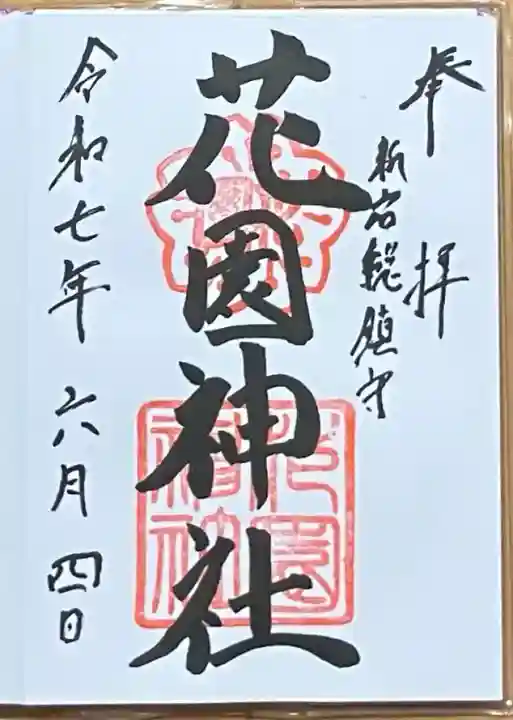 奉拝
新宿総鎮守
花園神社
令和七年 六月 四日
花園神社